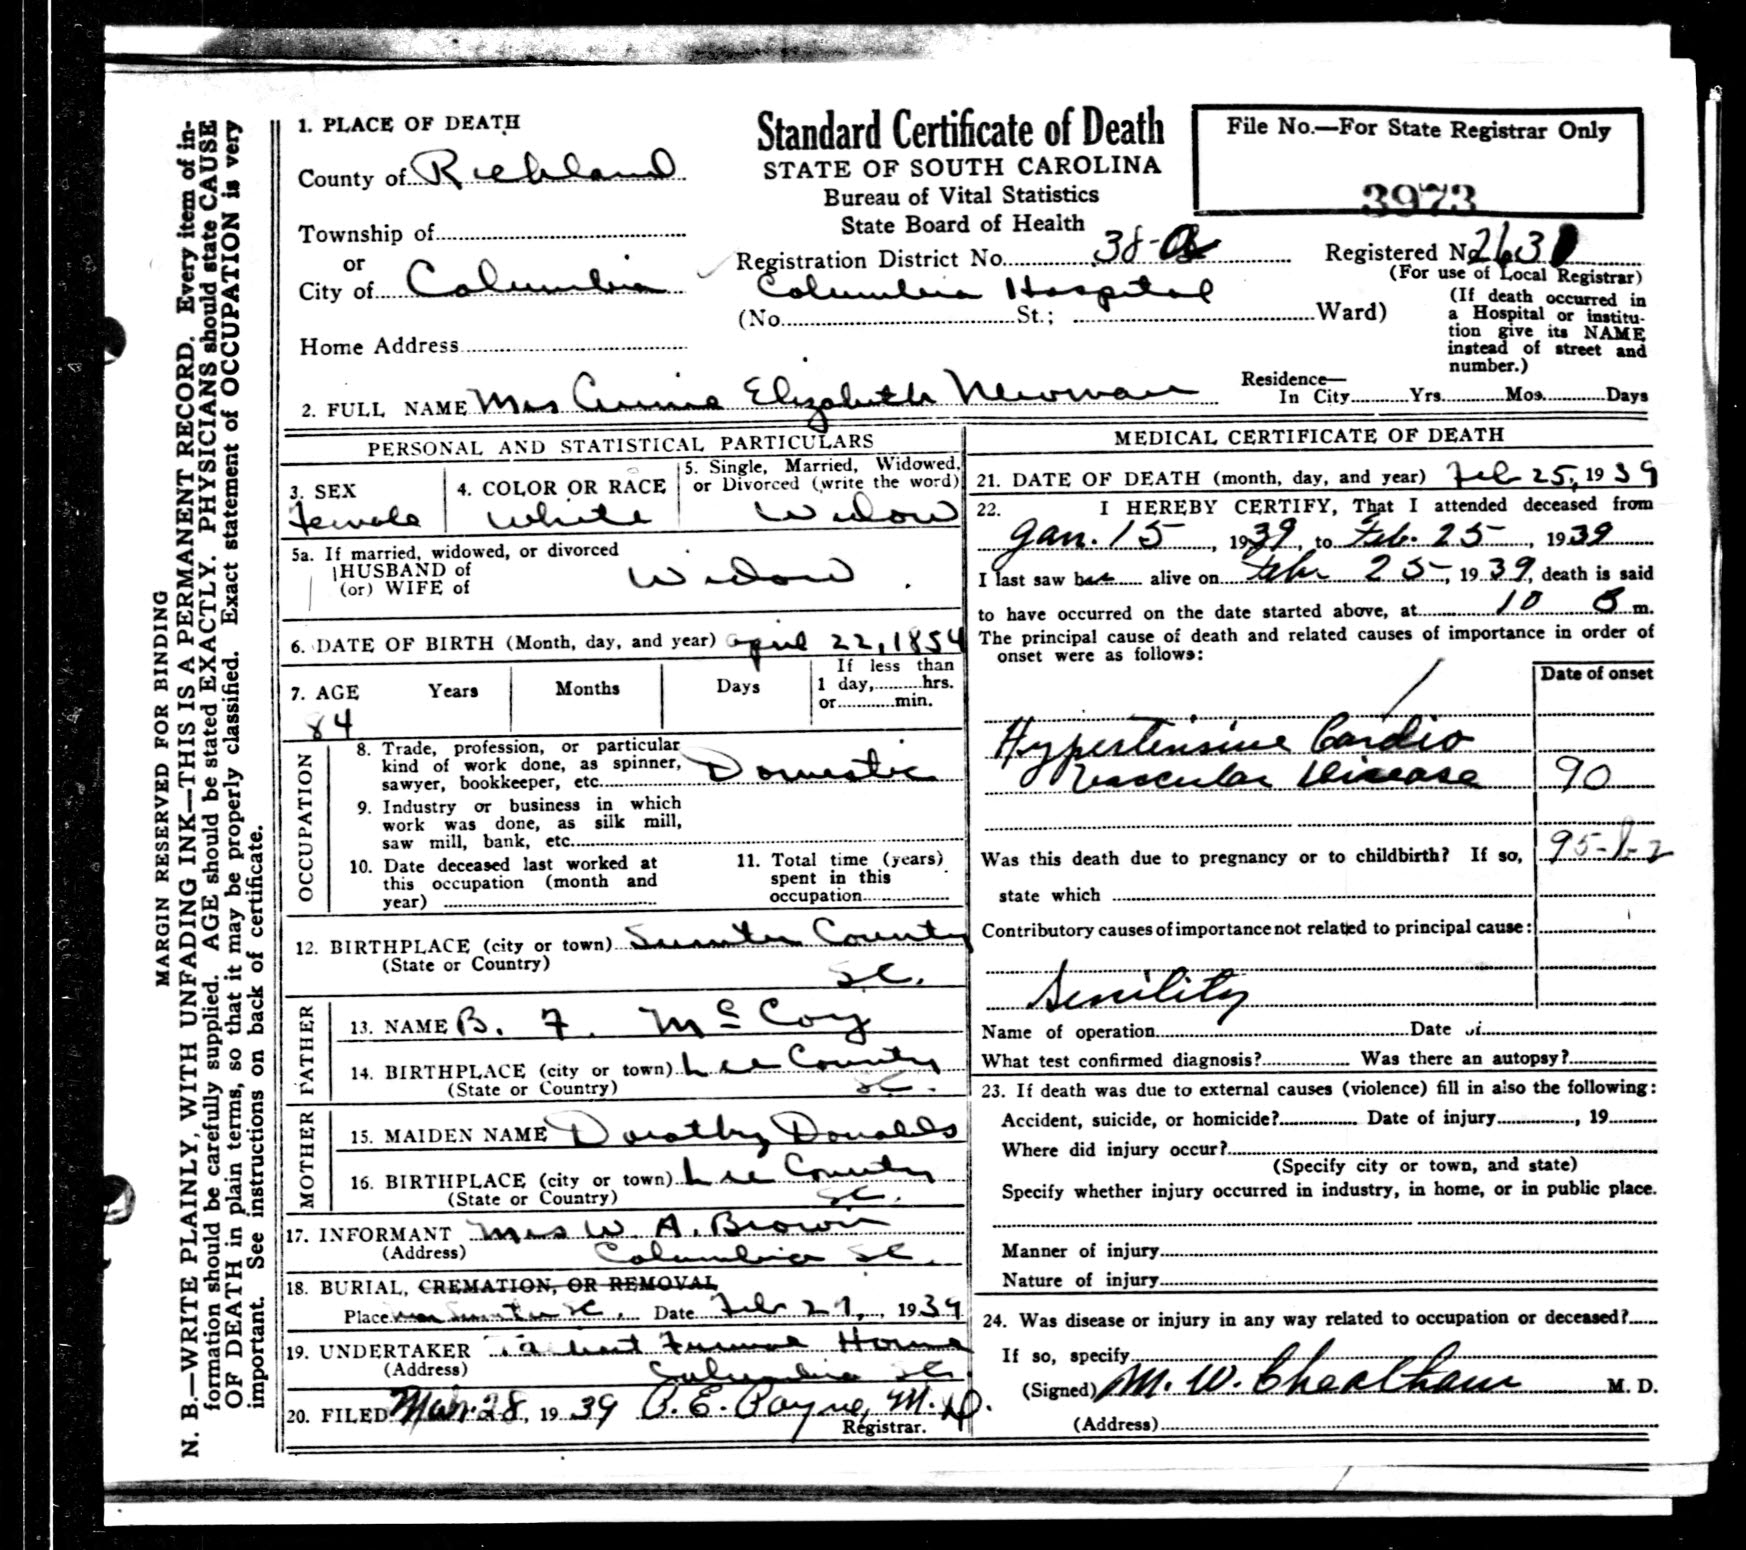 N. B.—WRITE PLAINLY, WITH UNFADING INK—THIS IS A PERMANENT RECORD. Every item of in-
formation should be carefully supplied. AGE should be stated EXACTLY. PHYSICIANS should state CAUSE
OF DEATH in plain terms, so that it may be properly classified. Exact statement of OCCUPATION is very
important. See instructions on back of certificate.
MARGIN RESERVED FOR BINDING
Standard Certificate of Death
STATE OF SOUTH CAROLINA
Bureau of Vital Statistics
State Board of Health
File No.—For State Registrar Only
3973
1. PLACE OF DEATH
County of Richland
Township of
or
City of Columbia
Home Address
Registration District No. 38-
Registered No.
(For use of Local Registrar)
Columbia Hospital
(No. St.; Ward)
(If death occurred in
a Hospital or institu-
tion give its NAME
instead of street and
number.)
2. FULL NAME Mrs Annie Elizabeth Newman
Residence—
In City Yrs. Mos. Days
PERSONAL AND STATISTICAL PARTICULARS
3. SEX
Female
4. COLOR OR RACE
White
5. Single, Married, Widowed,
or Divorced (write the word)
Widow
5a. If married, widowed, or divorced
HUSBAND of
(or) WIFE of
Widow
6. DATE OF BIRTH (Month, day, and year) April 22, 1854
7. AGE Years Months Days
84
If less than
1 day, hrs.
or min.
OCCUPATION
8. Trade, profession, or particular
kind of work done, as spinner,
sawyer, bookkeeper, etc. Domestic
9. Industry or business in which
work was done, as silk mill,
saw mill, bank, etc.
10. Date deceased last worked at
this occupation (month and
year)
11. Total time (years)
spent in this
occupation
12. BIRTHPLACE (city or town) Sumter County
(State or Country) SC.
FATHER
13. NAME B. F. McCoy
14. BIRTHPLACE (city or town) Lee County
(State or Country) SC.
MOTHER
15. MAIDEN NAME Dorothy Donalds
16. BIRTHPLACE (city or town) Lee County
(State or Country) SC.
17. INFORMANT Mrs W. A. Brown
(Address) Columbia SC.
18. BURIAL, CREMATION, OR REMOVAL
Place near Sumter SC. Date Feb 27, 1939
19. UNDERTAKER Funeral Home
(Address) Columbia SC.
20. FILED Mar. 28, 1939 Payne, M. D.
Registrar.
MEDICAL CERTIFICATE OF DEATH
21. DATE OF DEATH (month, day, and year) Feb 25, 1939
22. I HEREBY CERTIFY, That I attended deceased from
Jan. 15, 1939, to Feb. 25, 1939
I last saw her alive on Feb 25, 1939, death is said
to have occurred on the date started above, at 10 m.
The principal cause of death and related causes of importance in order of
onset were as follows:
Date of onset
Hypertensive Cardio
Vascular Disease 90
Was this death due to pregnancy or to childbirth? If so,
state which
Contributory causes of importance not related to principal cause:
Senility
Name of operation Date of
What test confirmed diagnosis? Was there an autopsy?
23. If death was due to external causes (violence) fill in also the following:
Accident, suicide, or homicide? Date of injury , 19
Where did injury occur?
(Specify city or town, and state)
Specify whether injury occurred in industry, in home, or in public place.
Manner of injury
Nature of injury
24. Was disease or injury in any way related to occupation or deceased?
If so, specify
(Signed) M. W. Cheatham M. D.
(Address)